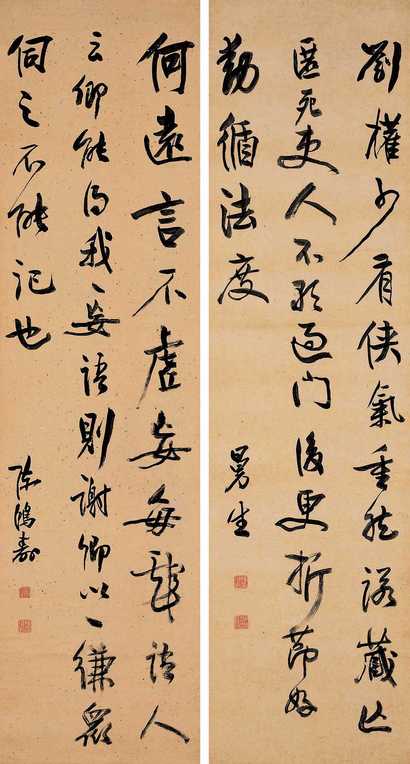 劉權少有俠氣重然諾藏亡
匿死吏人不敢過門後更折節好
勤循法度
曼生
何遠言不虛妄每戲語人
云卿能得我一妄語則謝卿以一縑衆
伺之不能記也
陳鴻壽